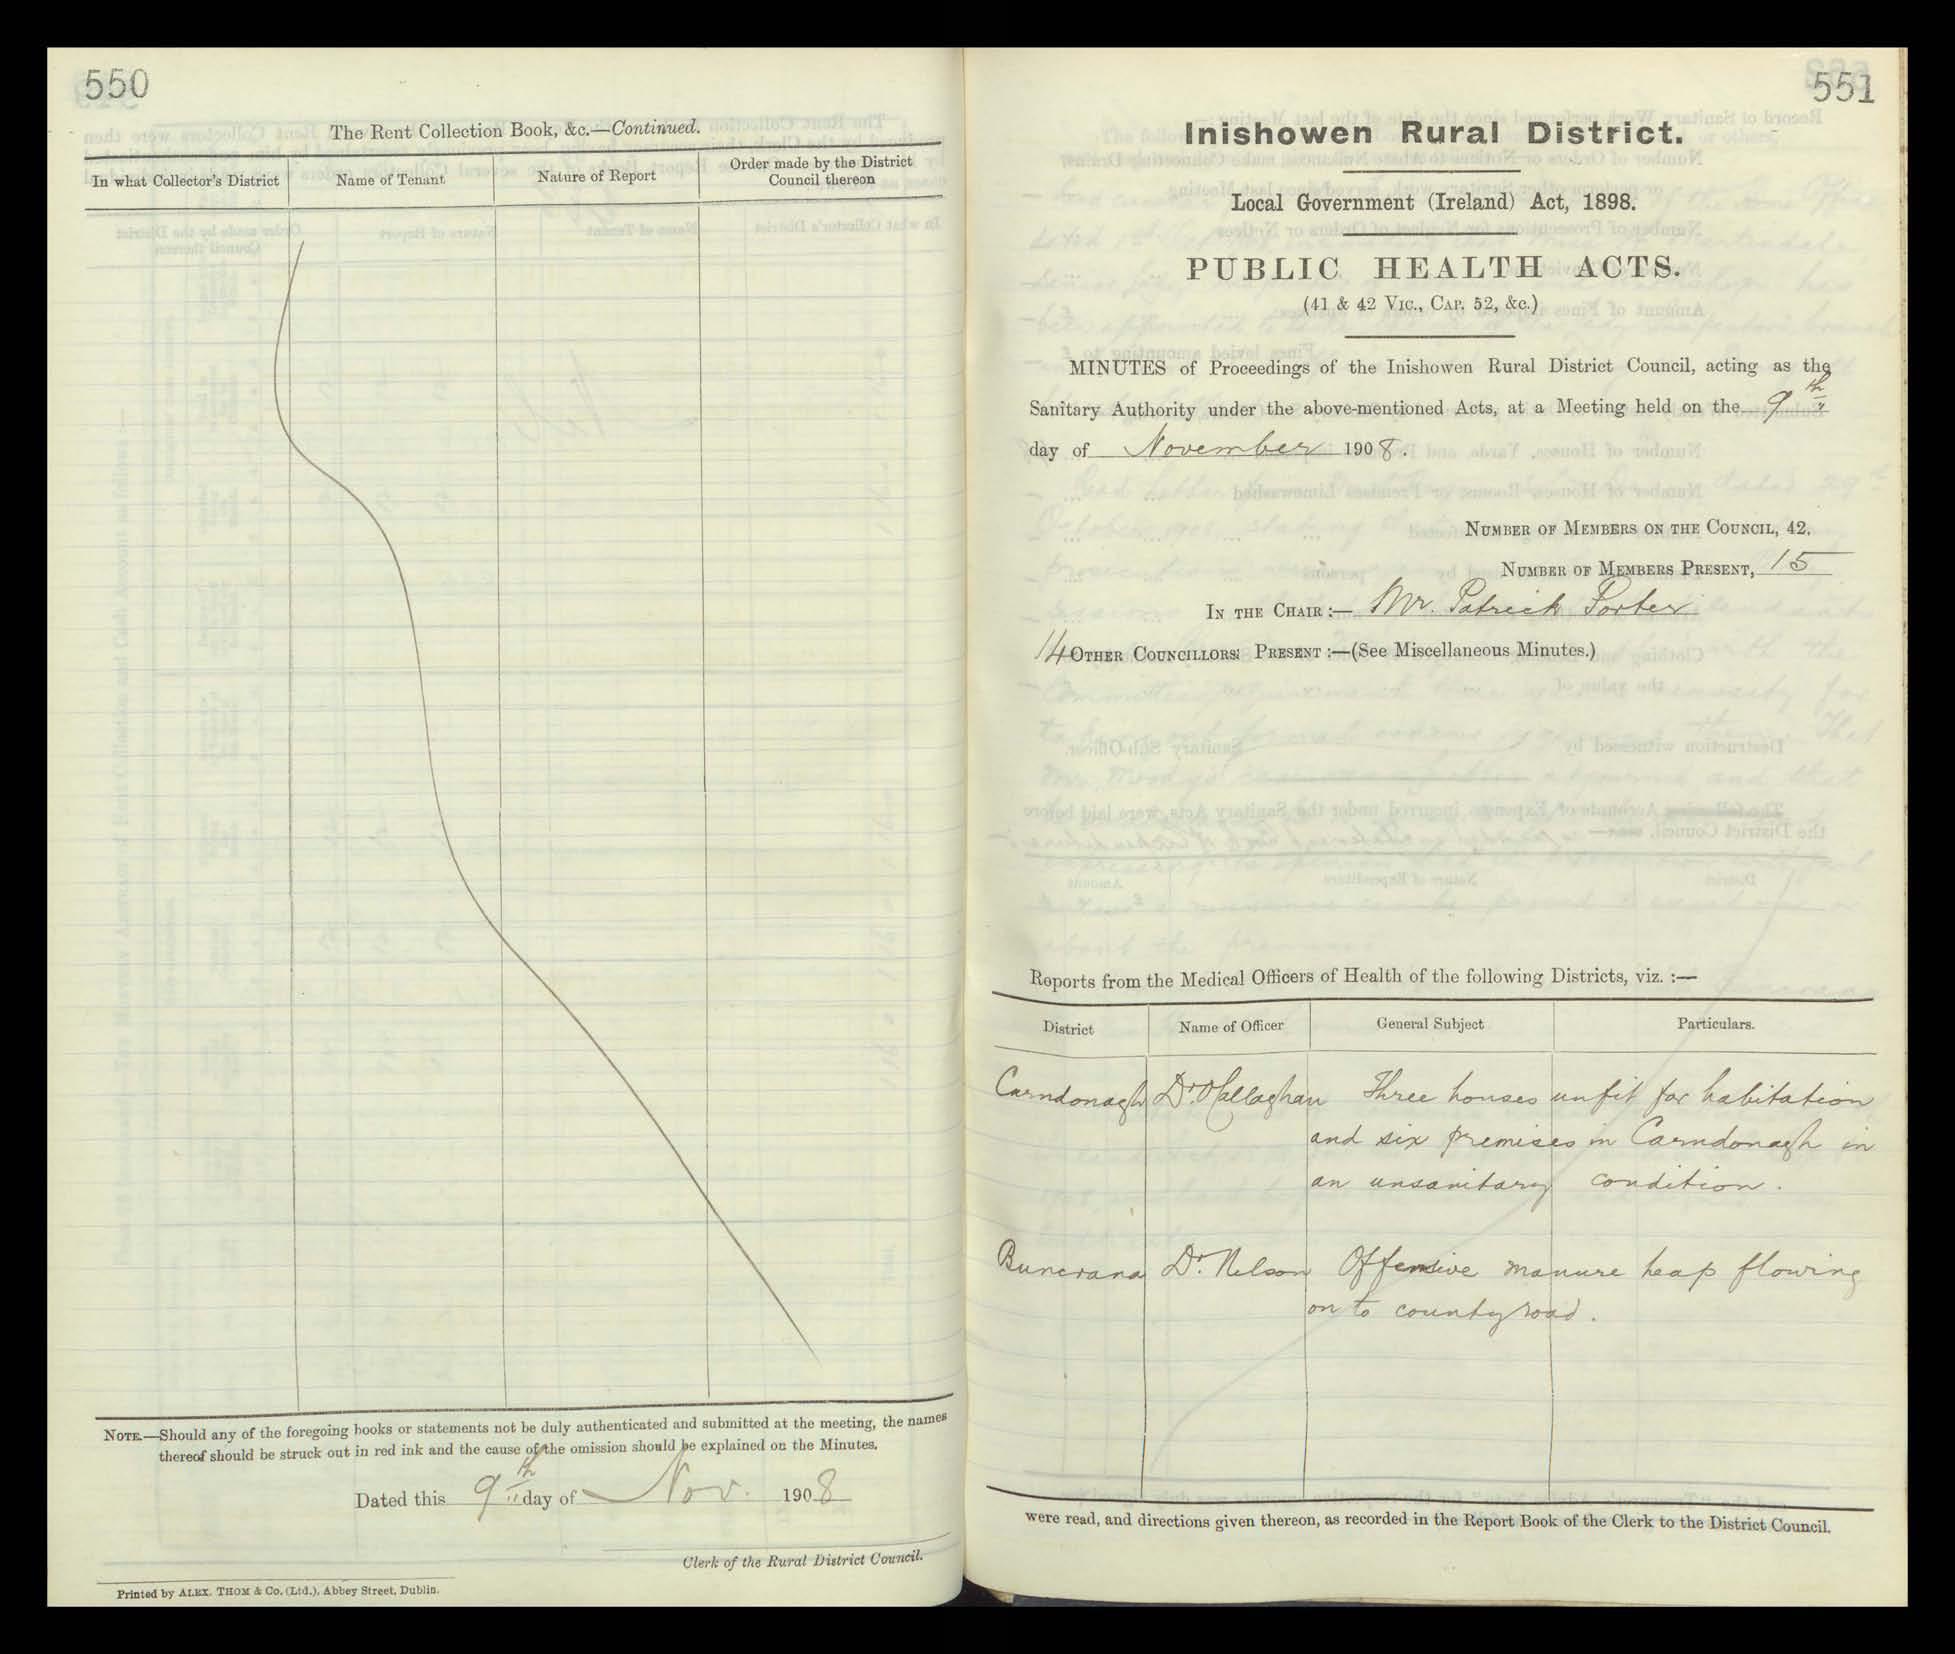 550
The Rent Collection Book, &c.—Continued.
In what Collector's District
Name of Tenant
Nature of Report
Order made by the District
Council thereon
NOTE.—Should any of the foregoing books or statements not be duly authenticated and submitted at the meeting, the names
thereof should be struck out in red ink and the cause of the omission should be explained on the Minutes.
Dated this 9th day of Nov. 1908
Clerk of the Rural District Council.
Printed by ALEX. THOM & Co. (Ltd.), Abbey Street, Dublin.
551
Inishowen Rural District.
Local Government (Ireland) Act, 1898.
PUBLIC HEALTH ACTS.
(41 & 42 VIC., CAP. 52, &c.)
MINUTES of Proceedings of the Inishowen Rural District Council, acting as the
Sanitary Authority under the above-mentioned Acts, at a Meeting held on the 9th
day of November 1908.
NUMBER OF MEMBERS ON THE COUNCIL, 42.
NUMBER OF MEMBERS PRESENT, 15
IN THE CHAIR :— Mr. Patrick Porter
14 OTHER COUNCILLORS: PRESENT :—(See Miscellaneous Minutes.)
Reports from the Medical Officers of Health of the following Districts, viz. :—
District Name of Officer General Subject Particulars.
Carndonagh Dr. O'Callaghan Three houses unfit for habitation
and six premises in Carndonagh in
an unsanitary condition.
Buncrana Dr. Nelson Offensive manure heap flowing
on to county road.
were read, and directions given thereon, as recorded in the Report Book of the Clerk to the District Council.